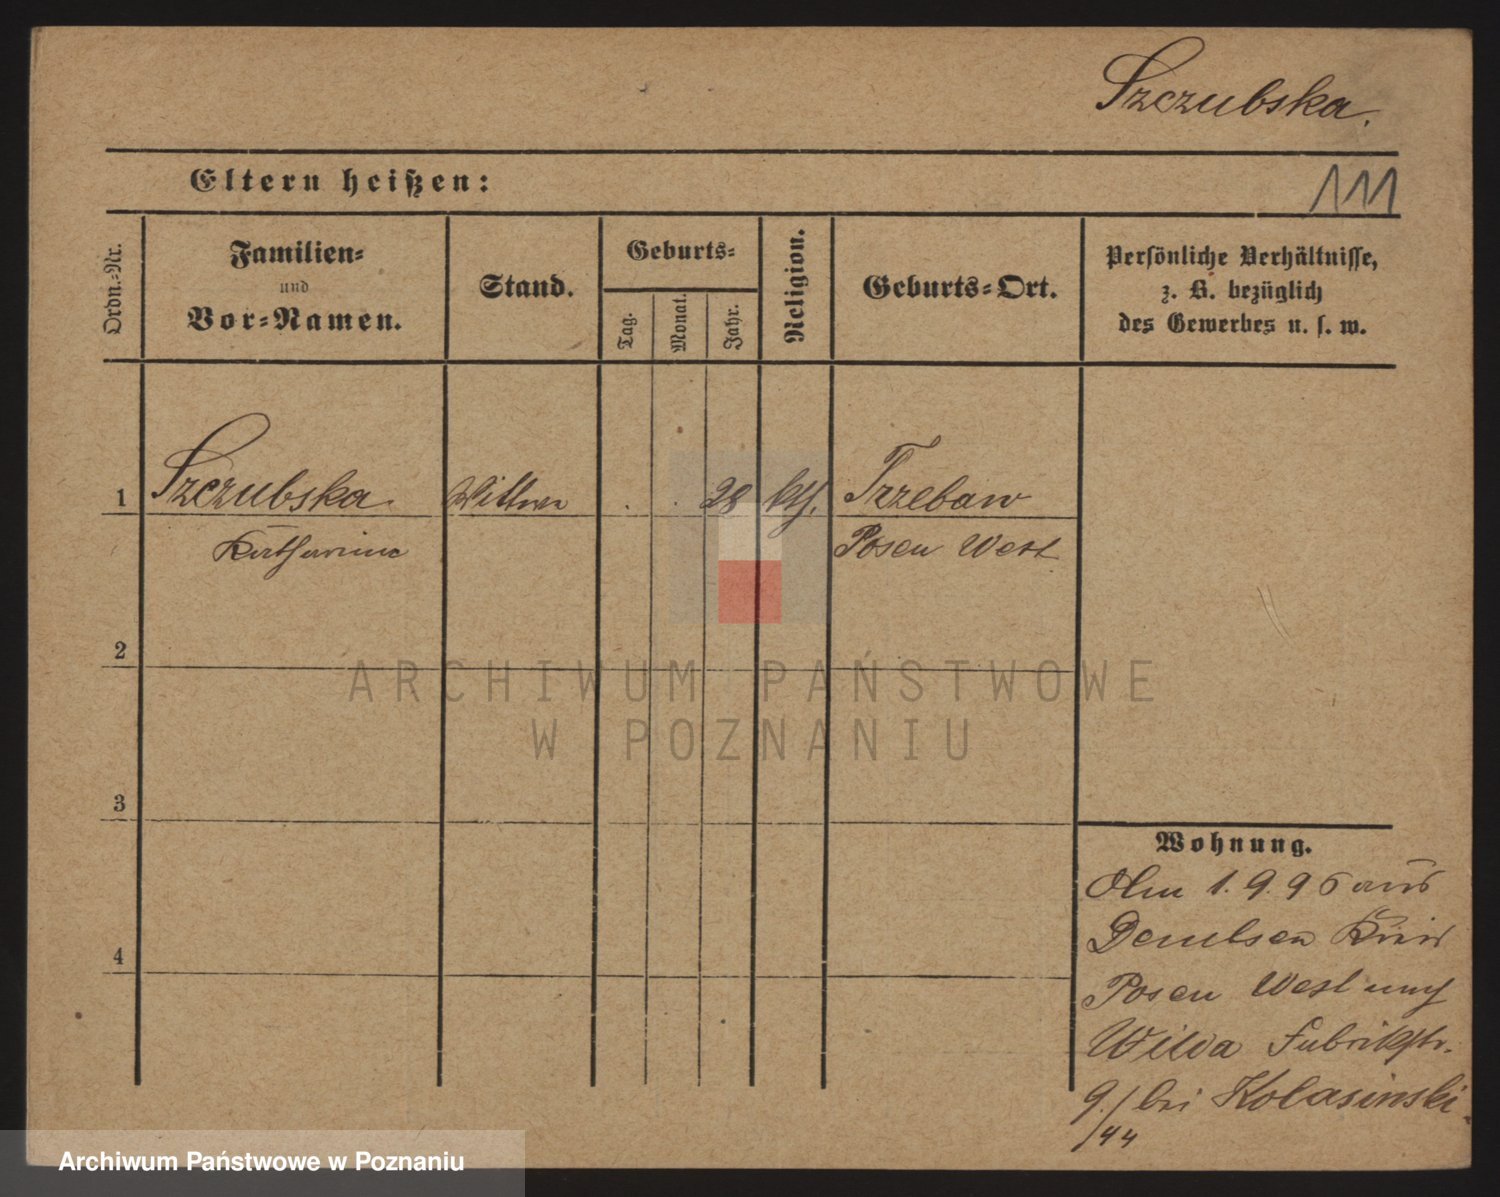 Szczubska.
Eltern heißen:
111
Ordn.-Nr.
Familien-
und
Vor-Namen.
Stand.
Geburts-
Tag.
Monat.
Jahr.
Religion.
Geburts-Ort.
Persönliche Verhältnisse,
z. B. bezüglich
des Gewerbes u. s. w.
1 Szczubska Wittwe . . 28 kth. Trzebaw
Katharina Posen West
2
3
4
Wohnung.
Am 1.9.96 aus
Demben Kreis
Posen West nach
Wilda Fabrikstr.
9./ bei Kolasinski
/44
ARCHIWUM PAŃSTWOWE
W POZNANIU
Archiwum Państwowe w Poznaniu